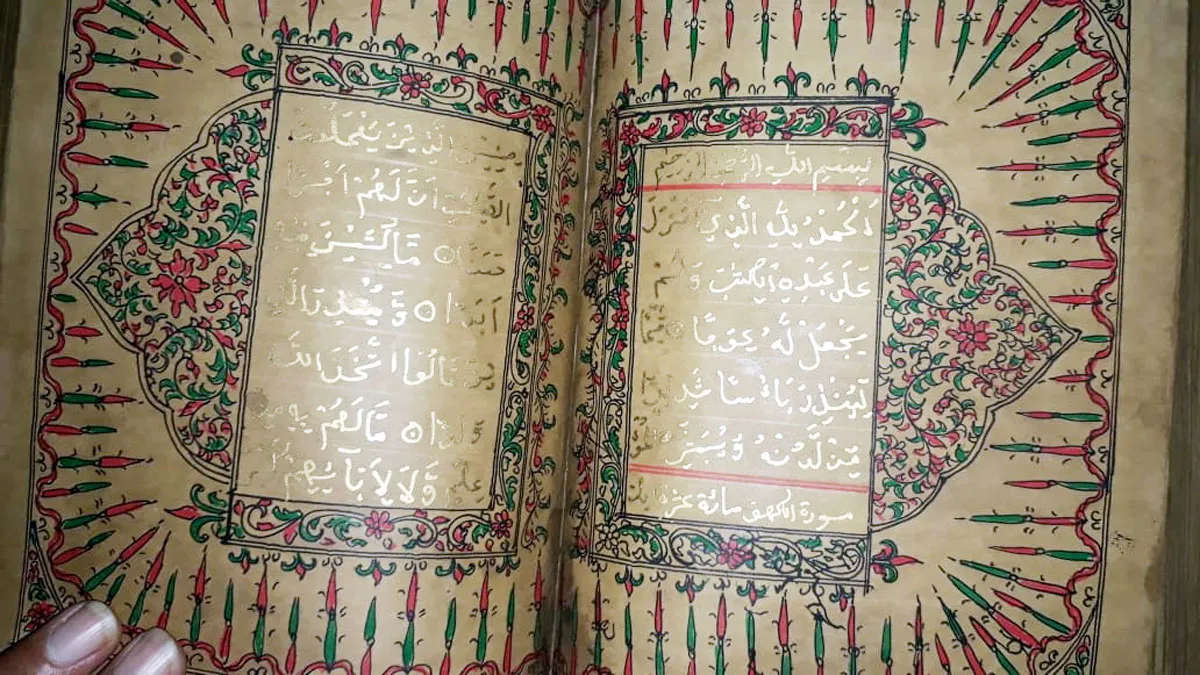 بِسْمِ اللّٰهِ الرَّحْمٰنِ الرَّحِيْمِ
اَلْحَمْدُ لِلّٰهِ الَّذِيْ اَنْزَلَ
عَلَى عَبْدِهِ الْكِتٰبَ وَلَمْ
يَجْعَلْ لَهُ عِوَجًا ۝ قَيِّمًا
لِيُنْذِرَ بَاْسًا شَدِيْدًا
مِنْ لَدُنْهُ وَيُبَشِّرَ
سورة الكهف مائة عشر
مِنِيْنَ الَّذِيْنَ يَعْمَلُوْنَ
اَنَّ لَهُمْ اَجْرًا
حَسَنًا ۝ مَاكِثِيْنَ فِيْهِ
اَبَدًا ۝ وَيُنْذِرَ الَّذِ
يْنَ قَالُوا اتَّخَذَ اللّٰهُ
وَلَدًا ۝ مَا لَهُمْ بِهِ مِنْ
عِلْمٍ وَلَا لِاٰبَآئِهِمْ